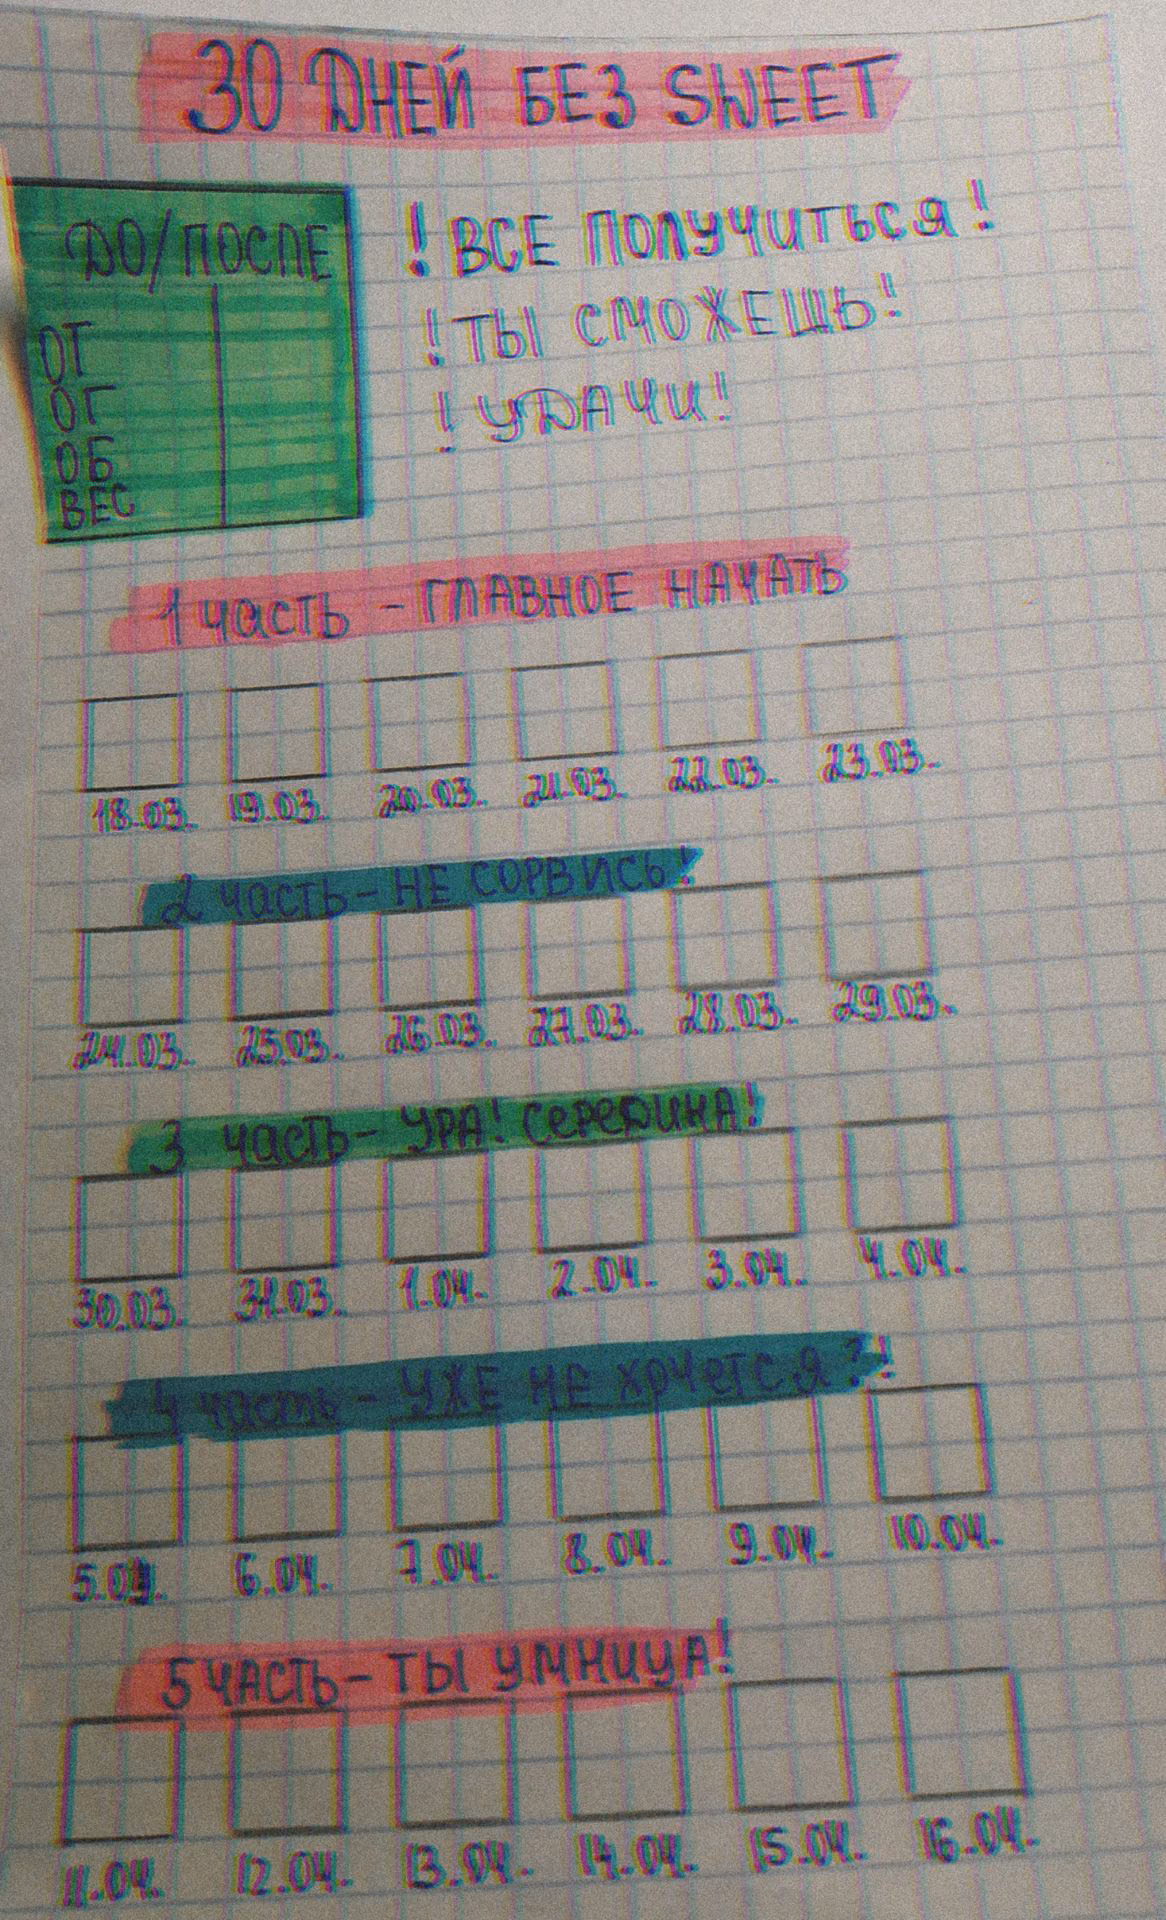 30 ДНЕЙ БЕЗ SWEET
ДО/ПОСЛЕ
ОГ
ОГ
ОБ
ВЕС
! ВСЕ ПОЛУЧИТЬСЯ!
! ТЫ СМОЖЕШЬ!
! УДАЧИ!
1 ЧАСТЬ - ГЛАВНОЕ НАЧАТЬ
18.03. 19.03. 20.03. 21.03. 22.03. 23.03.
2 ЧАСТЬ - НЕ СОРВИСЬ!
24.03. 25.03. 26.03. 27.03. 28.03. 29.03.
3 ЧАСТЬ - УРА! СЕРЕДИНА!
30.03. 31.03. 1.04. 2.04. 3.04. 4.04.
4 ЧАСТЬ - УЖЕ НЕ ХОЧЕТСЯ?!
5.04. 6.04. 7.04. 8.04. 9.04. 10.04.
5 ЧАСТЬ - ТЫ УМНИЦА!
11.04. 12.04. 13.04. 14.04. 15.04. 16.04.